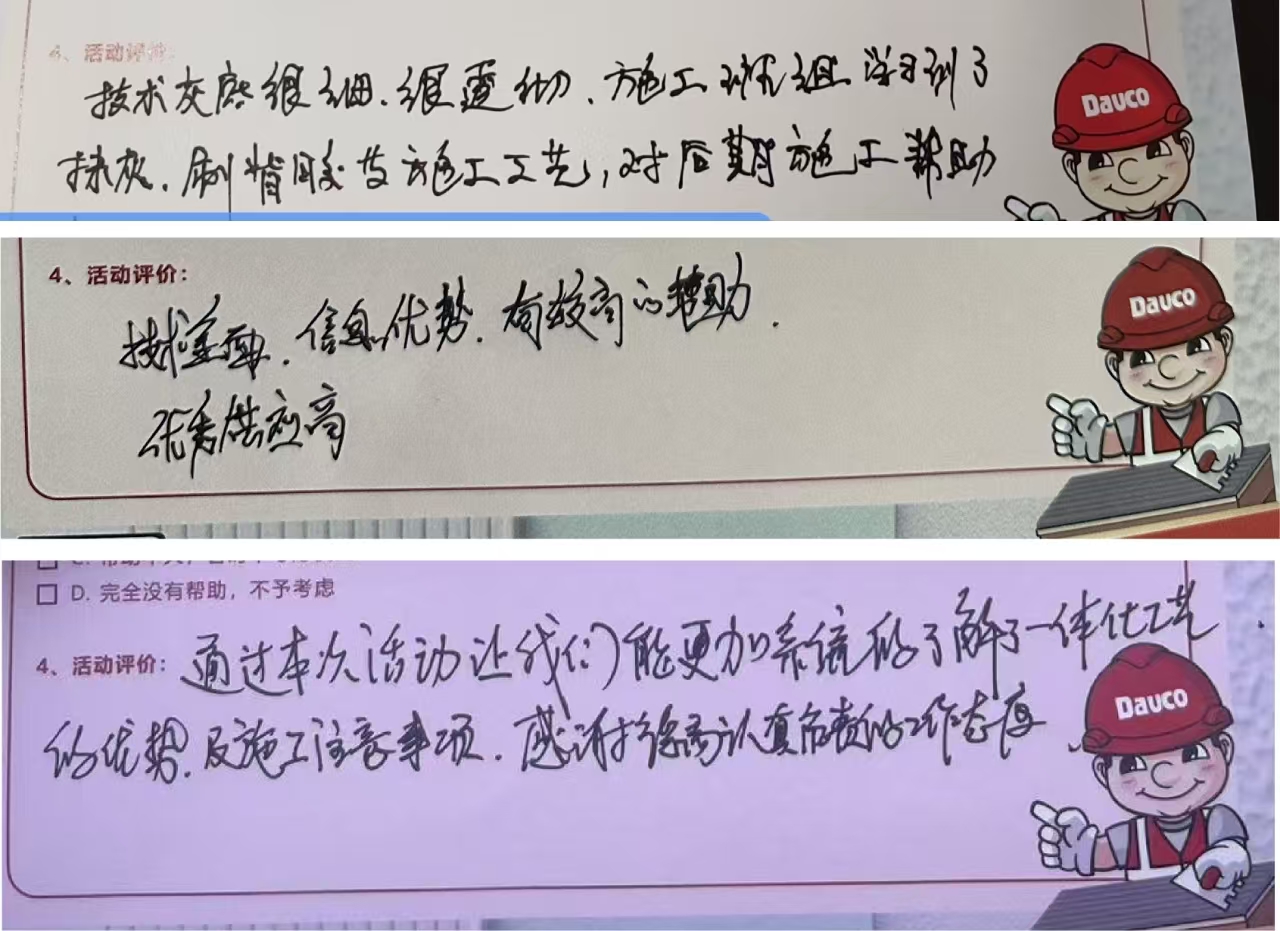 4、活动评价:
技术交底很细、很透彻、施工班组学习到了
抹灰、刷背胶及施工工艺，对后期施工帮助
Dauco
4、活动评价:
技术全面、信息优势、有较高的帮助.
优秀供应商
Dauco
D. 完全没有帮助，不予考虑
4、活动评价: 通过本次活动让我们能更加系统的了解了一体化工艺.
的优势、及施工注意事项. 感谢认真负责的工作态度
Dauco